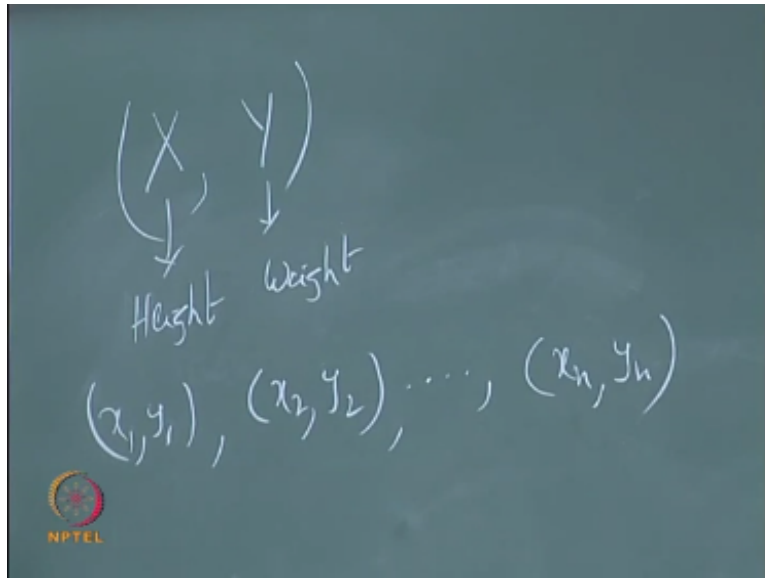 (X, Y)
↓ ↓
Height Weight
(x₁, y₁), (x₂, y₂), ...., (xₙ, yₙ)
NPTEL